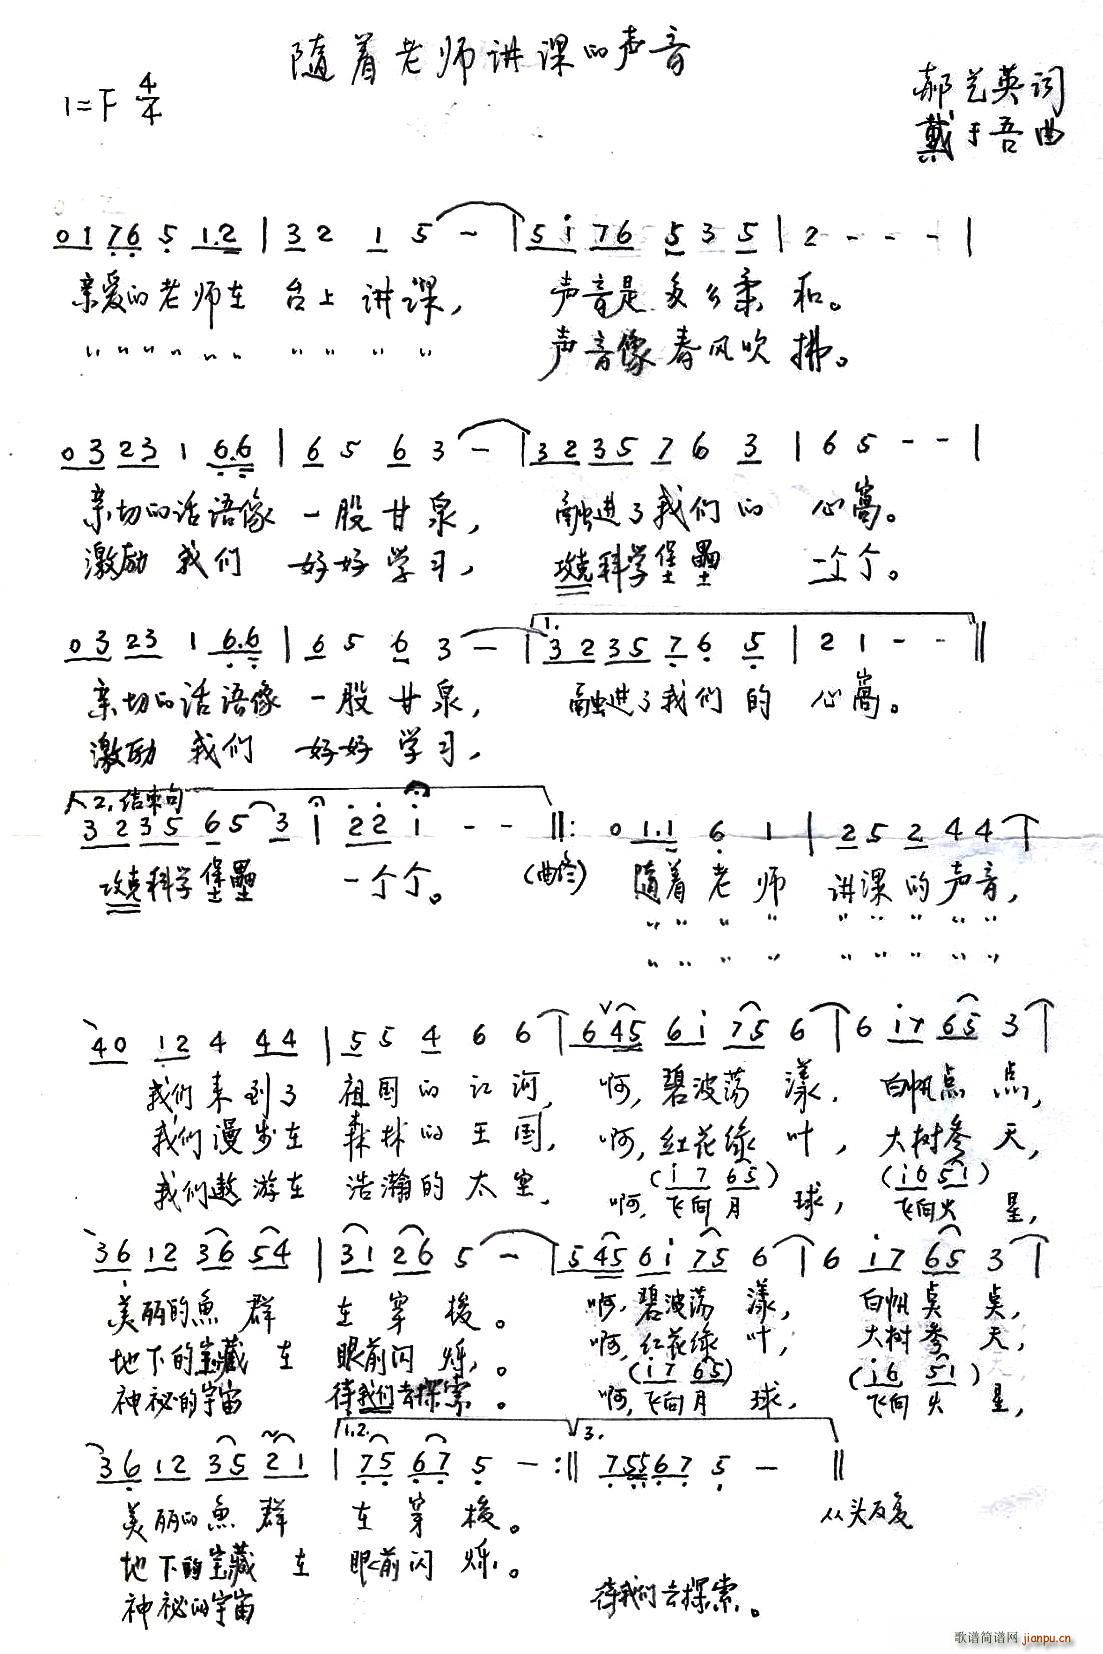 随着老师讲课的声音
1=F 4/4
郝艺英词
戴于吾曲
0 1 7 6 5 1. 2 | 3 2 1 5 - | 5 i 7 6 5 3 5 | 2 - - - |
亲爱的老师在 台上讲课, 声音是多么柔和。
〃 〃 〃 〃 〃 〃 〃 〃 〃 〃 声音像春风吹拂。
0 3 2 3 1 6. 6 | 6 5 6 3 - | 3 2 3 5 7 6 3 | 6 5 - - |
亲切的话语像 一股甘泉, 融进了我们的 心窝。
激励 我们 好好学习, 攻克科学堡垒 一个个。
1.
0 3 2 3 1 6. 6 | 6 5 6 3 - | 3 2 3 5 7 6 5 | 2 1 - - ‖
亲切的话语像 一股甘泉, 融进了我们的 心窝。
激励 我们 好好学习,
2. 结束句
3 2 3 5 6 5 3 i 2 2 i - - ‖: 0 1. 1 6 1 | 2 5 2 4 4 |
攻克科学堡垒 一个个。 (曲终) 随着老师 讲课的声音,
〃 〃 〃 〃 〃 〃 〃 〃 〃
〃 〃 〃 〃 〃 〃 〃 〃 〃
4 0 1 2 4 4 4 | 5 5 4 6 6 | 6 4 5 6 i 7 5 6 | 6 i 7 6 5 3 |
我们来到了 祖国的江河, 啊, 碧波荡漾, 白帆点点,
我们漫步在 森林的王国, 啊, 红花绿叶, 大树参天,
(i 7 6 5) (i 6 5 1)
我们遨游在 浩瀚的太空, 啊, 飞向月球, 飞向火星,
3 6 1 2 3 6 5 4 | 3 1 2 6 5 - | 5 4 5 6 i 7 5 6 | 6 i 7 6 5 3 |
美丽的鱼群 在穿梭。 啊, 碧波荡漾, 白帆点点,
地下的宝藏在 眼前闪烁。 啊, 红花绿叶, 大树参天,
(i 7 6 5) (i 6 5 1)
神秘的宇宙 待我们去探索。 啊, 飞向月球, 飞向火星,
1.2. 3.
3 6 1 2 3 5 2 1 | 7 5 6 7 5 - :‖ 7 5 5 6 7 5 - ‖
美丽的鱼群 在穿梭。 从头反复
地下的宝藏在 眼前闪烁。
神秘的宇宙 待我们去探索。
歌谱简谱网 jianpu.cn